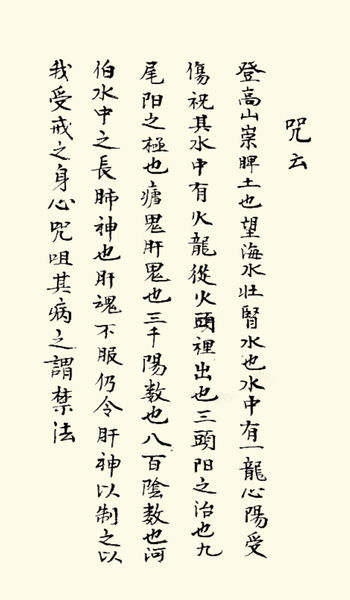 咒云
登高山崇脾土也望海水壮腎水也水中有一龍心陽受
傷祝其水中有火龍從火頭裡出也三頭阳之治也九
尾阳之極也瘧鬼肝鬼也三千陽数也八百陰数也河
伯水中之長肺神也肝魂不服仍令肝神以制之以
我受戒之身心咒咀其病之謂禁法